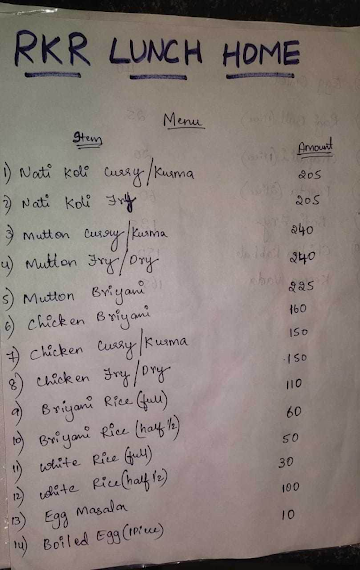 RKR LUNCH HOME
Menu
Item Amount
1) Nati Koli Curry/Kurma 205
2) Nati Koli Fry 205
3) Mutton Curry/Kurma 240
4) Mutton Fry/Dry 240
5) Mutton Briyani 225
6) Chicken Briyani 160
7) Chicken Curry/Kurma 150
8) Chicken Fry/Dry 150
9) Briyani Rice (full) 110
10) Briyani Rice (half ½) 60
11) White Rice (full) 50
12) White Rice (half ½) 30
13) Egg Masala 100
14) Boiled Egg (1Piece) 10